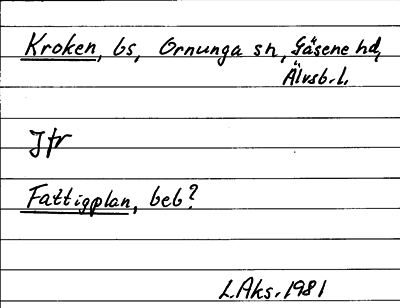 Kroken, bs, Ornunga sn, Gäsene hd,
Älvsb.l.
Jfr
Fattigplan, beb?
L.Aks. 1981